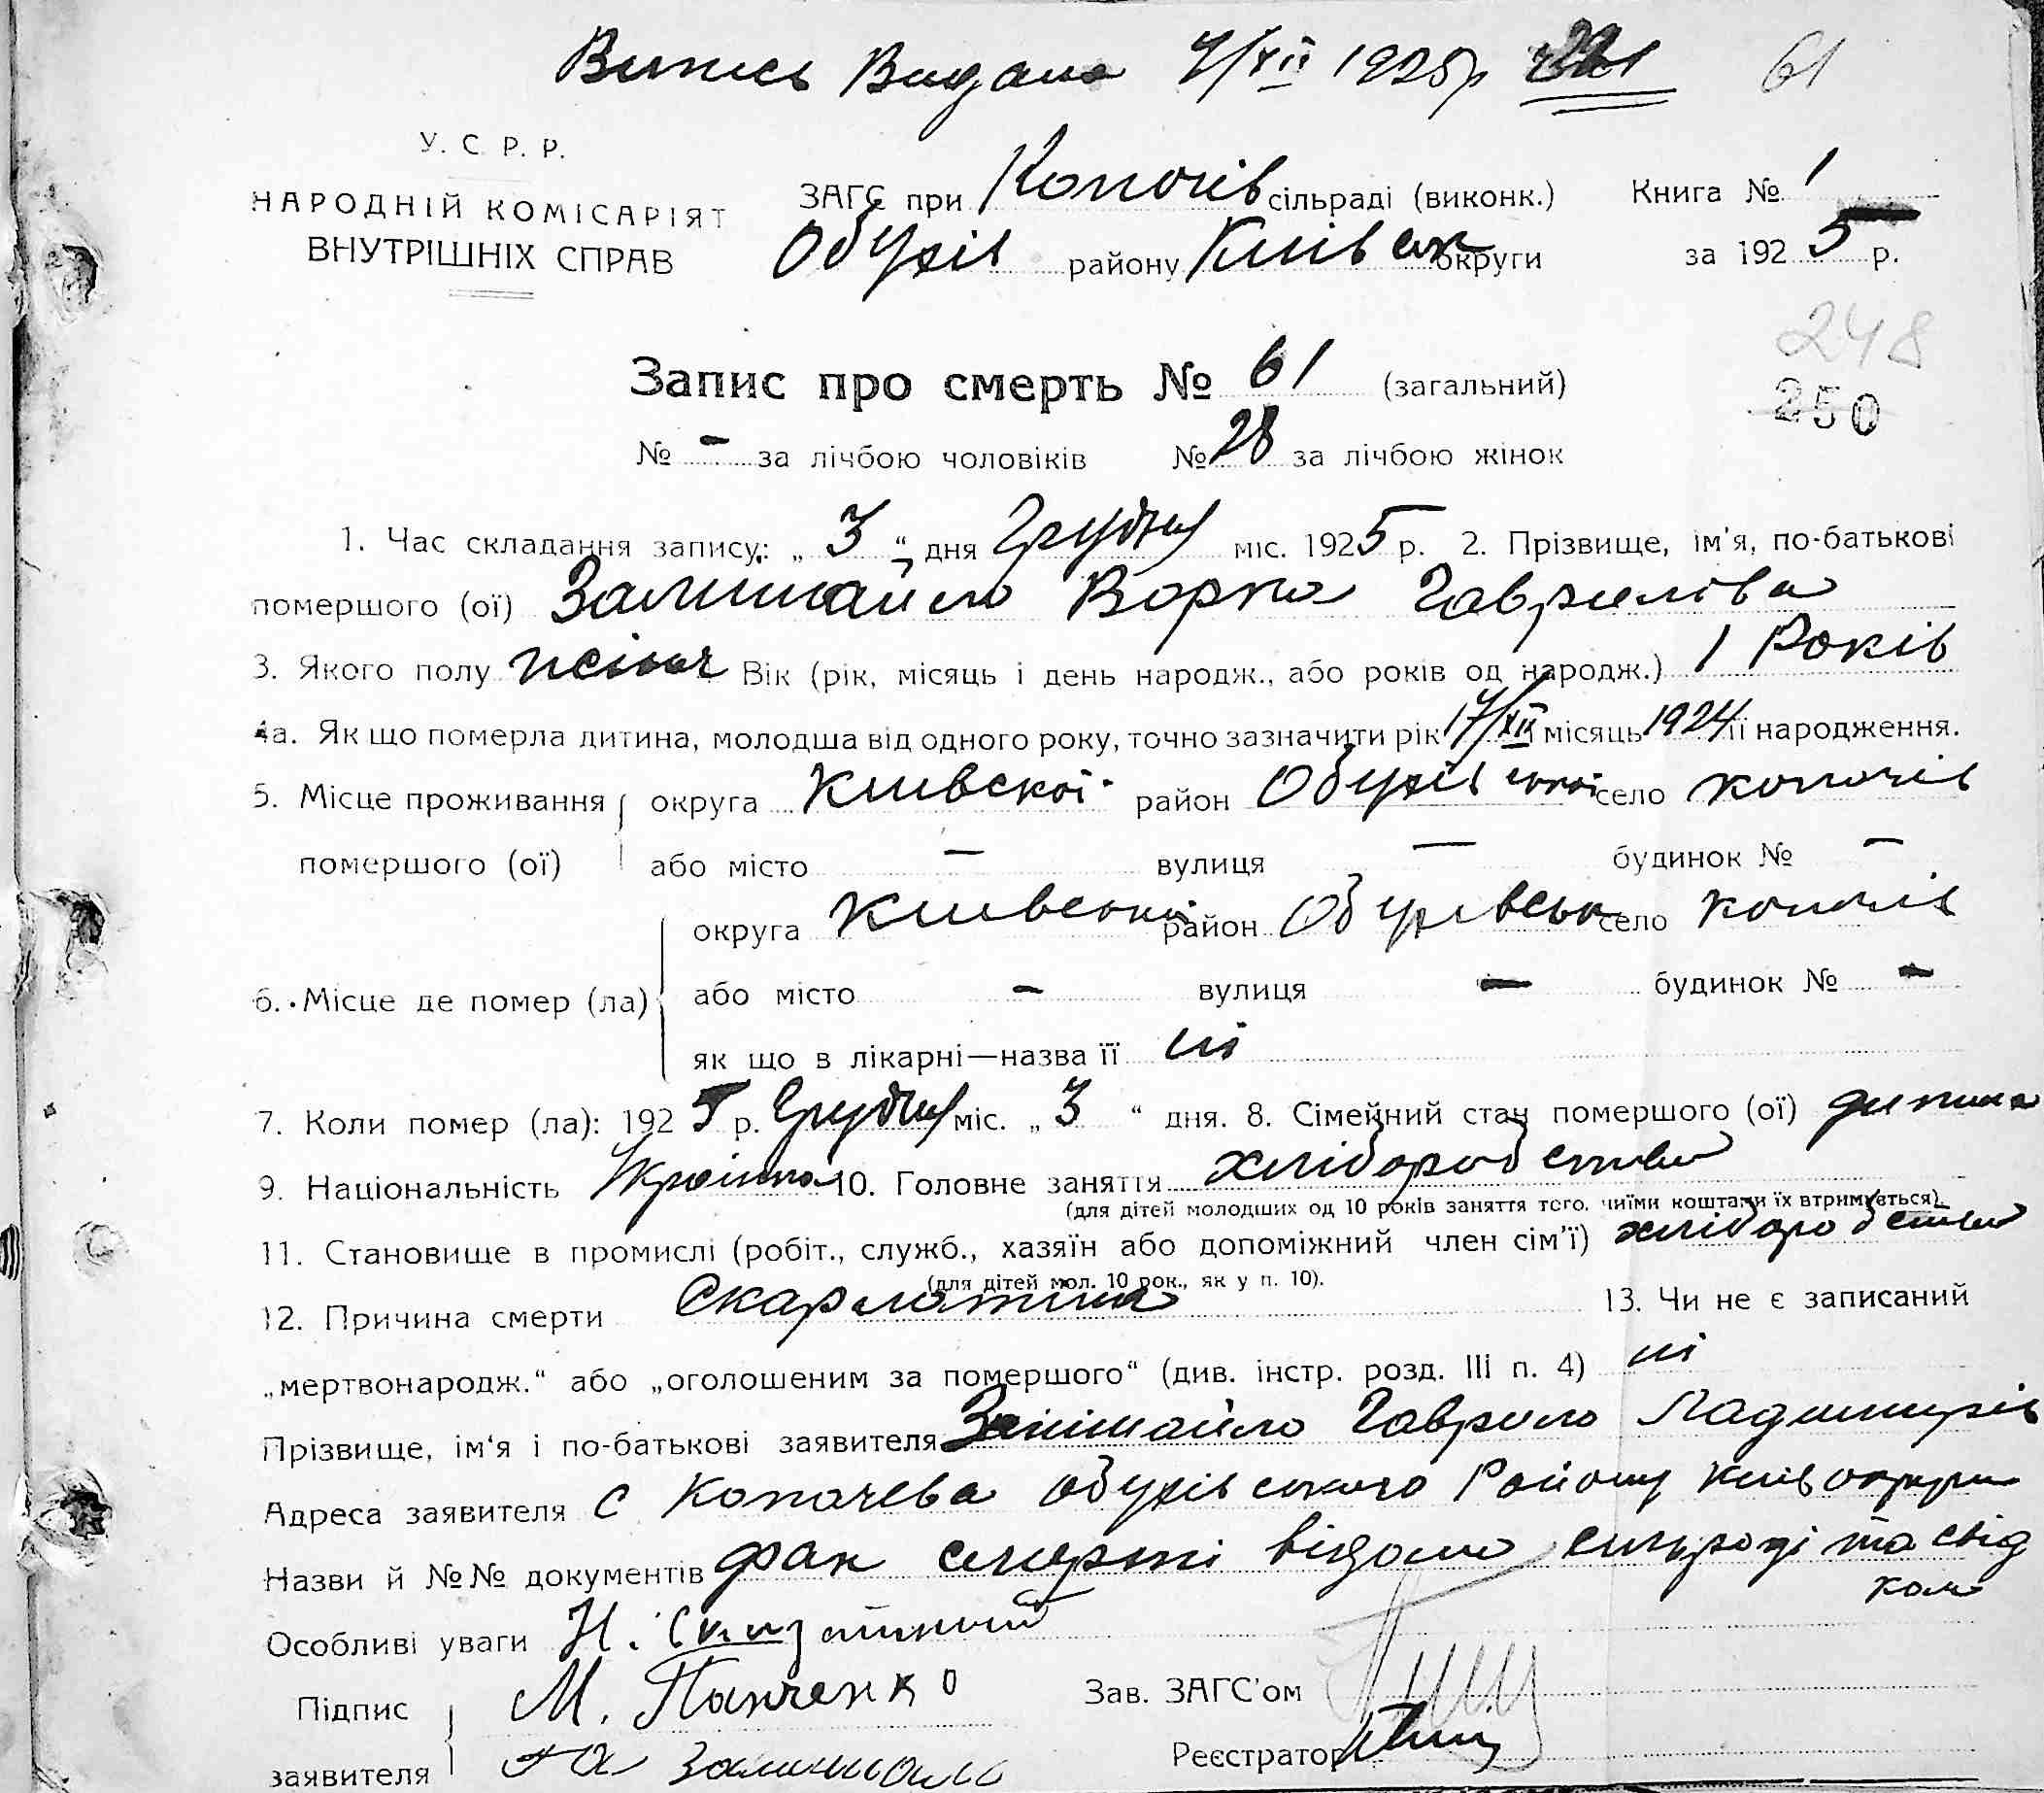 Випись Видана 4/XII 1925р 61
У. С. Р. Р.
НАРОДНІЙ КОМІСАРІЯТ
ВНУТРІШНІХ СПРАВ
ЗАГС при Копачів сільраді (виконк.) Книга № 1
Обухів району Київськ округи за 1925 р.
248
250
Запис про смерть № 61 (загальний)
№ – за лічбою чоловіків № 28 за лічбою жінок
1. Час складання запису: „ 3 “ дня Грудня міс. 1925 р. 2. Прізвище, ім'я, по-батькові
помершого (ої) Залишайло Ворка Гаврилова
3. Якого полу жіноч Вік (рік, місяць і день народж., або років од народж.) 1 Років
4а. Як що померла дитина, молодша від одного року, точно зазначити рік 17/XII місяць 1924 її народження.
5. Місце проживання округа Киівскоі район Обухівськоі село Копачів
помершого (ої) або місто – вулиця – будинок № –
округа Киівськоі район Обухівськ село Копачів
6. Місце де помер (ла) або місто – вулиця – будинок № –
як що в лікарні—назва її ні
7. Коли помер (ла): 1925 р. Грудня міс. „ 3 “ дня. 8. Сімейний стан помершого (ої) дитина
9. Національність Украінка 10. Головне заняття хліборобство
(для дітей молодших од 10 років заняття того, чиїми коштами їх втримується).
11. Становище в промислі (робіт., служб., хазяїн або допоміжний член сім'ї) хліборобство
(для дітей мол. 10 рок., як у п. 10).
12. Причина смерти Скарлатина 13. Чи не є записаний
„мертвонародж.“ або „оголошеним за помершого“ (див. інстр. розд. III п. 4) ні
Прізвище, ім'я і по-батькові заявителя Залишайло Гаврило
Адреса заявителя с Копачева Обухівського Району Київ округи
Назви й №№ документів фак смерті відомо сільраді та свід
кам
Особливі уваги Н.
Підпис М. Панченко Зав. ЗАГС'ом
заявителя та Залишайло Реєстратор